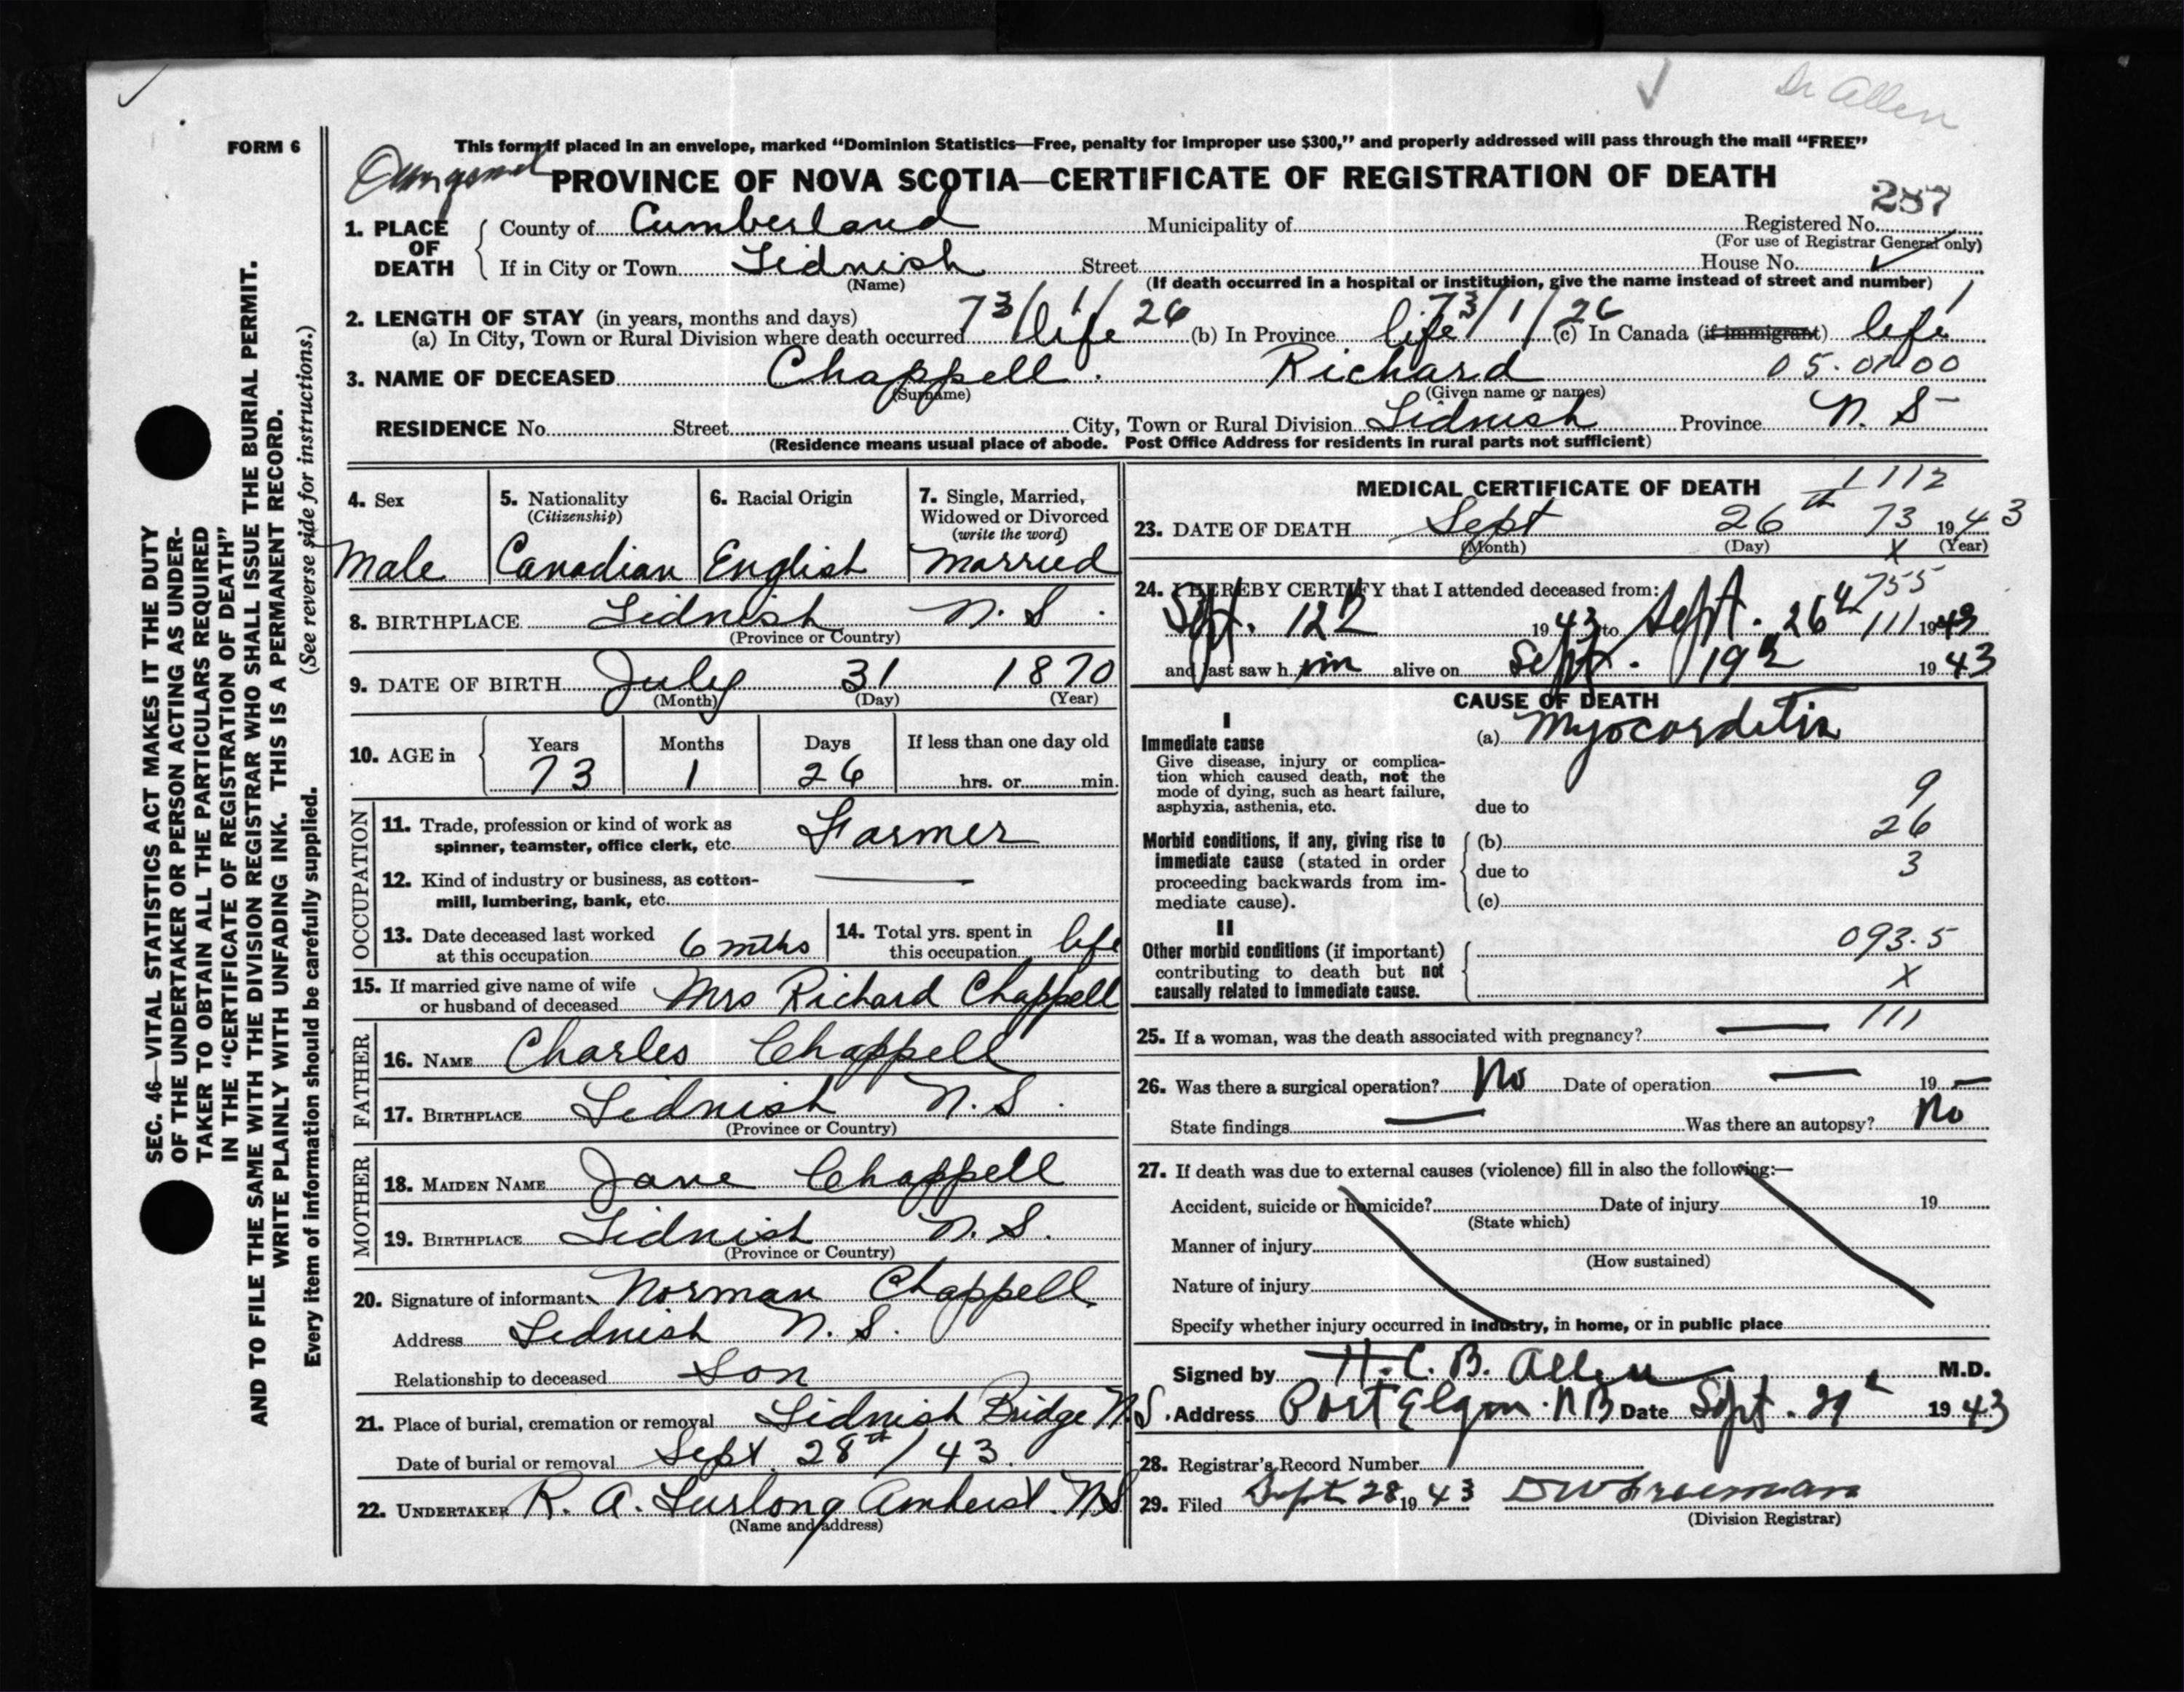 Dr Allen
FORM 6
This form if placed in an envelope, marked "Dominion Statistics—Free, penalty for improper use $300," and properly addressed will pass through the mail "FREE"
PROVINCE OF NOVA SCOTIA—CERTIFICATE OF REGISTRATION OF DEATH
287
1. PLACE OF DEATH
County of Cumberland Municipality of Registered No.
(For use of Registrar General only)
If in City or Town Lidnish Street House No.
(Name) (If death occurred in a hospital or institution, give the name instead of street and number)
2. LENGTH OF STAY (in years, months and days) 73/1/26 73/1/26
(a) In City, Town or Rural Division where death occurred life (b) In Province life (c) In Canada (if immigrant) life
3. NAME OF DECEASED Chappell. Richard 05.01.00
(Surname) (Given name or names)
RESIDENCE No. Street City, Town or Rural Division Lidnish Province N. S
(Residence means usual place of abode. Post Office Address for residents in rural parts not sufficient)
4. Sex
Male
5. Nationality
(Citizenship)
Canadian
6. Racial Origin
English
7. Single, Married,
Widowed or Divorced
(write the word)
Married
8. BIRTHPLACE Lidnish N. S.
(Province or Country)
9. DATE OF BIRTH July 31 1870
(Month) (Day) (Year)
10. AGE in
Years Months Days If less than one day old
73 1 26 hrs. or min.
OCCUPATION
11. Trade, profession or kind of work as
spinner, teamster, office clerk, etc. Farmer
12. Kind of industry or business, as cotton-
mill, lumbering, bank, etc.
13. Date deceased last worked
at this occupation 6 mths
14. Total yrs. spent in
this occupation life
15. If married give name of wife
or husband of deceased Mrs Richard Chappell
FATHER
16. NAME Charles Chappell
17. BIRTHPLACE Lidnish N. S.
(Province or Country)
MOTHER
18. MAIDEN NAME Jane Chappell
19. BIRTHPLACE Lidnish N. S.
(Province or Country)
20. Signature of informant Norman Chappell
Address Lidnish N. S.
Relationship to deceased Son
21. Place of burial, cremation or removal Lidnish Bridge N.S.
Date of burial or removal Sept. 28th/43.
22. UNDERTAKER R. A. Furlong Amherst. N.S
(Name and address)
MEDICAL CERTIFICATE OF DEATH
1112
23. DATE OF DEATH Sept 26th 73 1943
(Month) (Day) X (Year)
24. I HEREBY CERTIFY that I attended deceased from: 4755
Sept. 12 1943 to Sept. 26 111 1943
and last saw him alive on Sept. 19 1943
CAUSE OF DEATH
I
Immediate cause
Give disease, injury or complica-
tion which caused death, not the
mode of dying, such as heart failure,
asphyxia, asthenia, etc.
(a) Myocarditis
due to
9
Morbid conditions, if any, giving rise to
immediate cause (stated in order
proceeding backwards from im-
mediate cause).
(b) 26
due to 3
(c)
II
Other morbid conditions (if important)
contributing to death but not
causally related to immediate cause.
093.5
X
25. If a woman, was the death associated with pregnancy? — 111
26. Was there a surgical operation? No Date of operation — 19 —
State findings — Was there an autopsy? No
27. If death was due to external causes (violence) fill in also the following:—
Accident, suicide or homicide? Date of injury 19
(State which)
Manner of injury
(How sustained)
Nature of injury
Specify whether injury occurred in industry, in home, or in public place
Signed by H. C. B. Allen M.D.
Address Port Elgin. NB Date Sept. 29 1943
28. Registrar's Record Number
29. Filed Sept 28 1943 D W Freeman
(Division Registrar)
SEC. 46—VITAL STATISTICS ACT MAKES IT THE DUTY
OF THE UNDERTAKER OR PERSON ACTING AS UNDER-
TAKER TO OBTAIN ALL THE PARTICULARS REQUIRED
IN THE "CERTIFICATE OF REGISTRATION OF DEATH"
AND TO FILE THE SAME WITH THE DIVISION REGISTRAR WHO SHALL ISSUE THE BURIAL PERMIT.
WRITE PLAINLY WITH UNFADING INK. THIS IS A PERMANENT RECORD.
Every item of information should be carefully supplied. (See reverse side for instructions.)